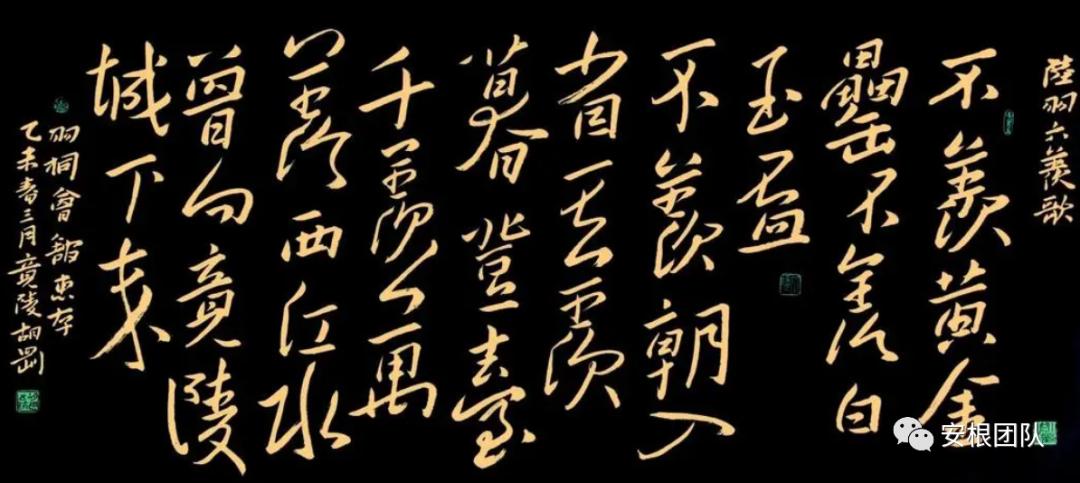 陸羽六羨歌
不羨黃金
罍不羨白
玉盃
不羨朝入
省不羨
暮登臺
千羨萬
羨西江水
曾向竟陵
城下來
羽桐會館惠存
乙未春三月竟陵胡剛
安根团队